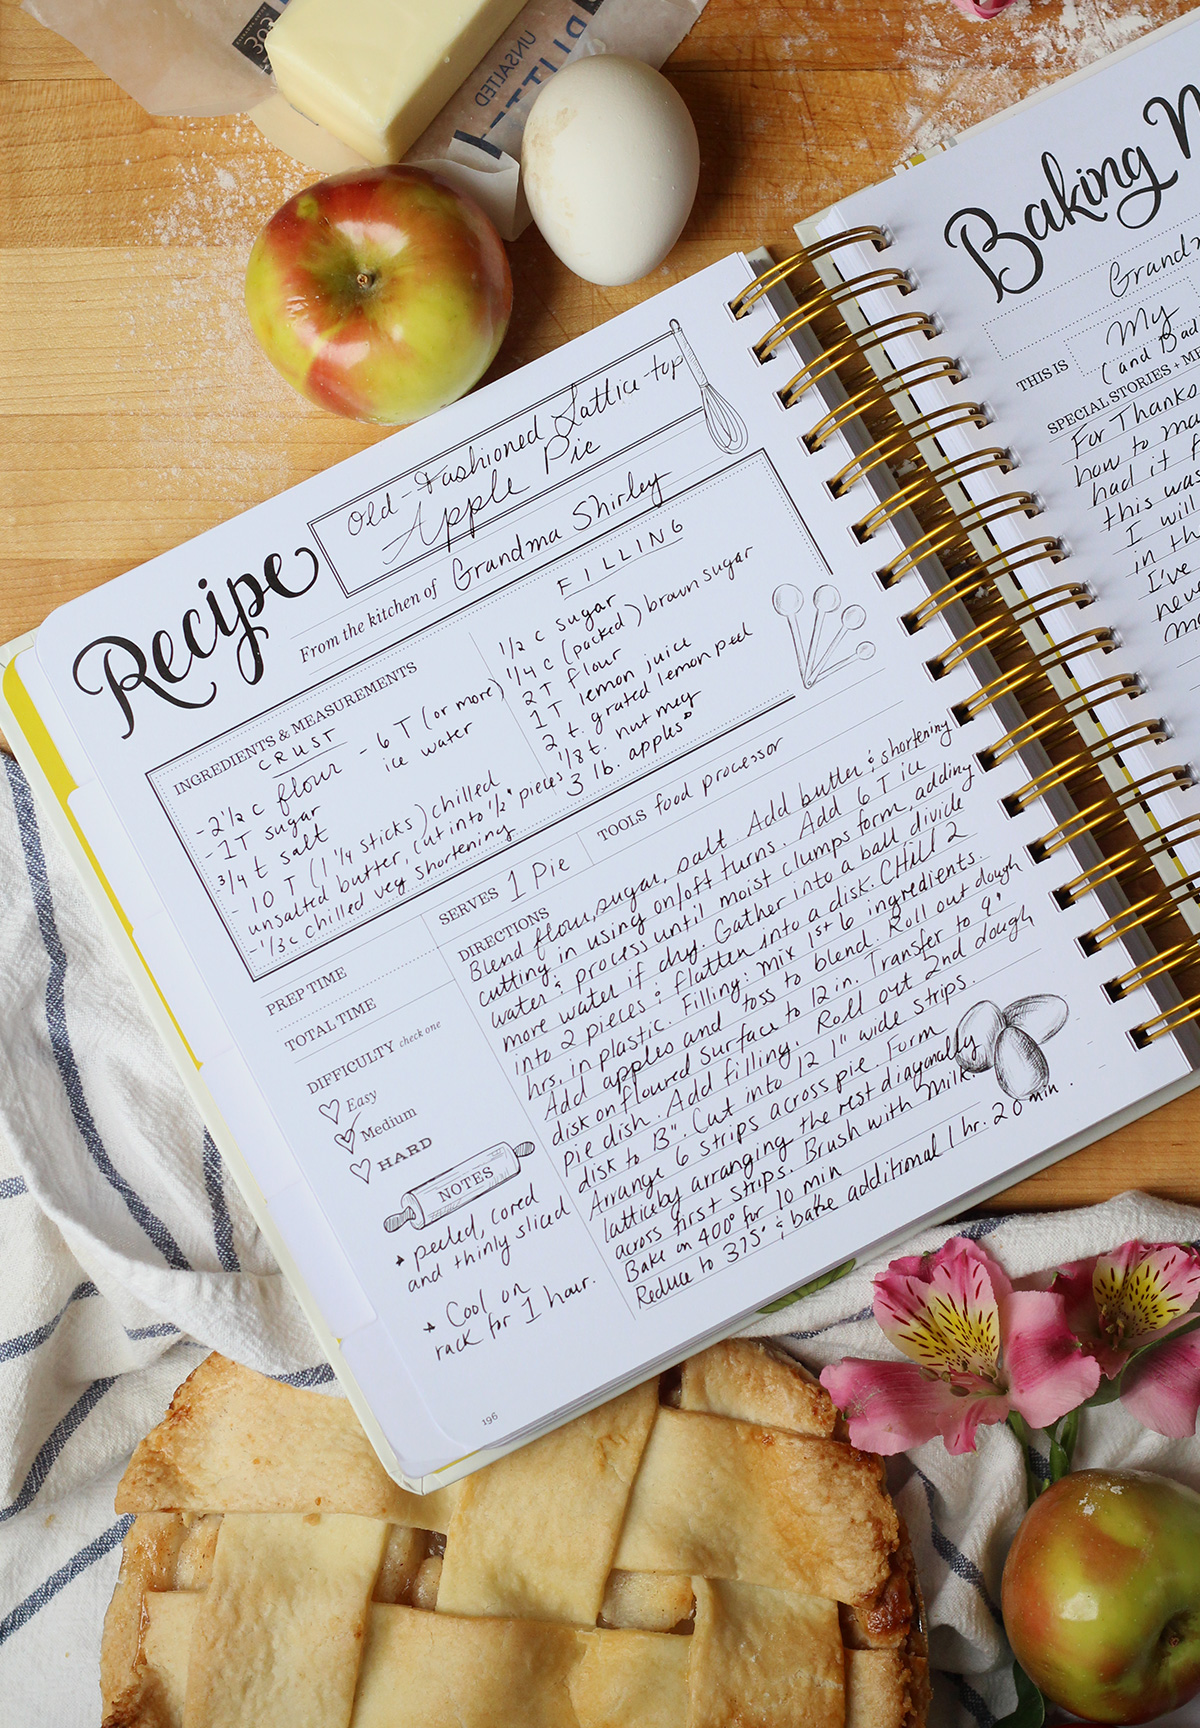 UNSALTED
Recipe
Old-Fashioned Lattice-top
Apple Pie
From the kitchen of Grandma Shirley
INGREDIENTS & MEASUREMENTS
CRUST
- 2 1/2 c flour
- 1 T sugar
3/4 t salt
- 10 T (1 1/4 sticks) chilled
unsalted butter, cut into 1/2" pieces
- 1/3 c chilled veg shortening
- 6 T (or more)
ice water
FILLING
1/2 c sugar
1/4 c (packed) brown sugar
2 T flour
1 T lemon juice
2 t. grated lemon peel
1/8 t. nutmeg
3 lb. apples*
PREP TIME
TOTAL TIME
SERVES 1 Pie
TOOLS food processor
DIFFICULTY check one
Easy
Medium
HARD
NOTES
* peeled, cored
and thinly sliced
* Cool on
rack for 1 hour.
DIRECTIONS
Blend flour, sugar, salt. Add butter & shortening
cutting in using on/off turns. Add 6 T ice
water & process until moist clumps form, adding
more water if dry. Gather into a ball divide
into 2 pieces & flatten into a disk. CHill 2
hrs. in plastic. Filling: mix 1st 6 ingredients.
Add apples and toss to blend. Roll out dough
disk on floured surface to 12 in. Transfer to 9"
pie dish. Add filling. Roll out 2nd dough
disk to 13". Cut into 12 1" wide strips.
Arrange 6 strips across pie. Form
lattice by arranging the rest diagonally
across first strips. Brush with milk.
Bake on 400° for 10 min
Reduce to 375° & bake additional 1 hr. 20 min.
196
Baking
THIS IS My
(and
SPECIAL STORIES +
For
how to
had it
this was
I will
in
I've